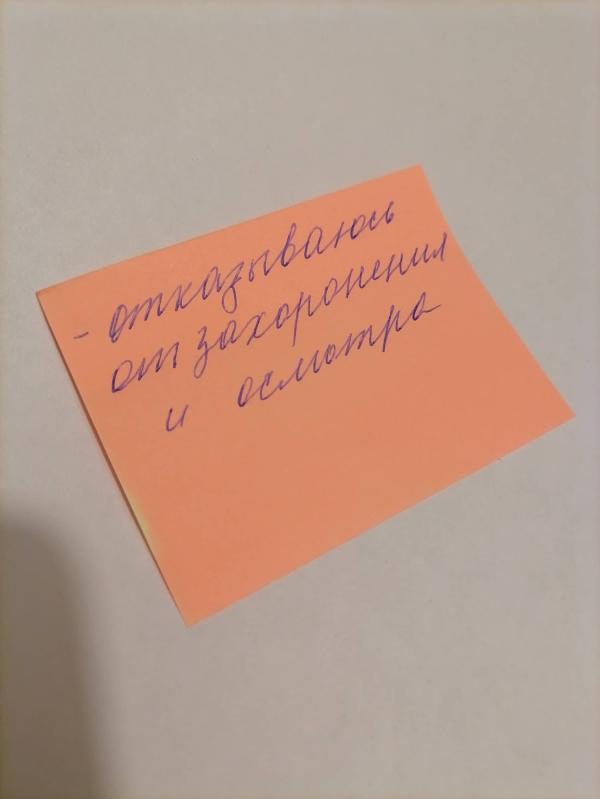 - отказываюсь
от захоронения
и осмотра